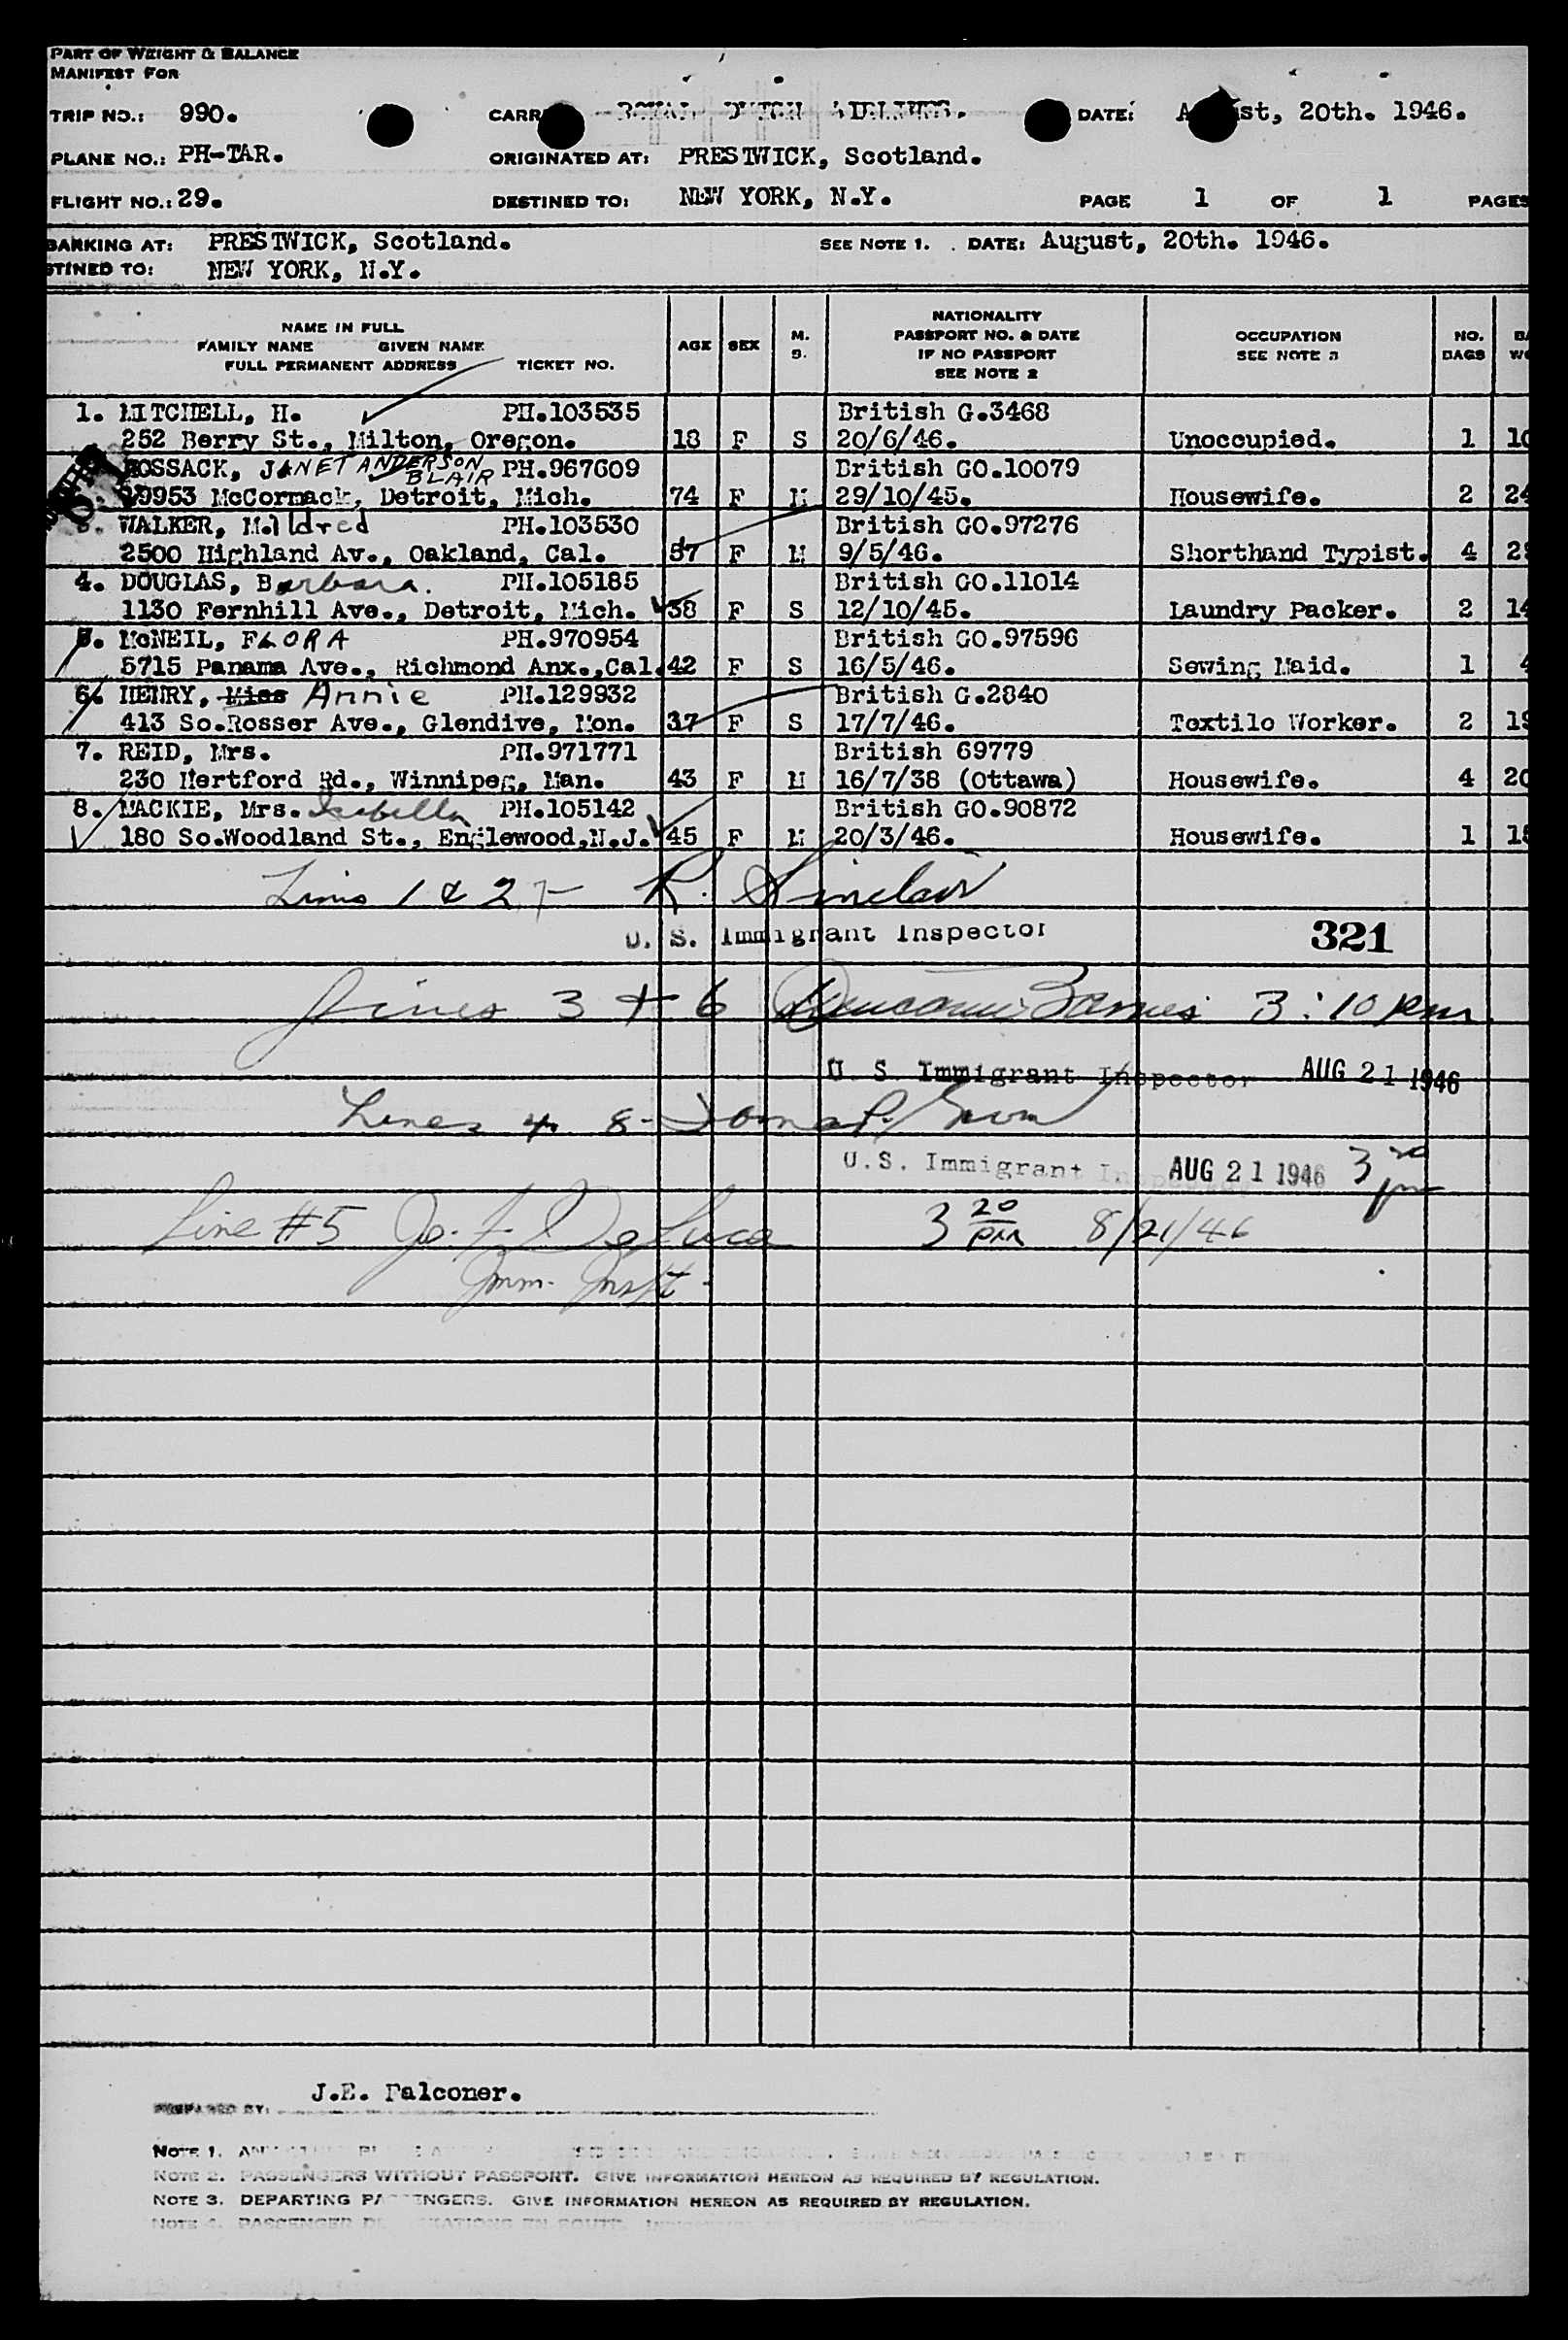 PART OF WEIGHT & BALANCE
MANIFEST FOR
TRIP NO.: 990. CARR ROYAL DUTCH AIRLINES. DATE: A st, 20th. 1946.
PLANE NO.: PH-TAR. ORIGINATED AT: PRESTWICK, Scotland.
FLIGHT NO.: 29. DESTINED TO: NEW YORK, N.Y. PAGE 1 OF 1 PAGES
BARKING AT: PRESTWICK, Scotland. SEE NOTE 1. DATE: August, 20th. 1946.
STINED TO: NEW YORK, N.Y.
NAME IN FULL
FAMILY NAME GIVEN NAME
FULL PERMANENT ADDRESS TICKET NO. AGE SEX M. S. NATIONALITY PASSPORT NO. & DATE IF NO PASSPORT SEE NOTE 2 OCCUPATION SEE NOTE 3 NO. BAGS BA WG
1. MITCHELL, H. PH.103535 British G.3468
252 Berry St., Milton, Oregon. 18 F S 20/6/46. Unoccupied. 1 10
ROSSACK, JANET ANDERSON BLAIR PH.967609 British GO.10079
29953 McCormack, Detroit, Mich. 74 F M 29/10/45. Housewife. 2 24
3. WALKER, Mildred PH.103530 British GO.97276
2500 Highland Av., Oakland, Cal. 57 F M 9/5/46. Shorthand Typist. 4 29
4. DOUGLAS, Barbara. PH.105185 British GO.11014
1130 Fernhill Ave., Detroit, Mich. 38 F S 12/10/45. Laundry Packer. 2 14
5. McNEIL, FLORA PH.970954 British GO.97596
5715 Panama Ave., Richmond Anx.,Cal. 42 F S 16/5/46. Sewing Maid. 1 4
6. HENRY, Miss Annie PH.129932 British G.2840
413 So.Rosser Ave., Glendive, Mon. 37 F S 17/7/46. Textile Worker. 2 19
7. REID, Mrs. PH.971771 British 69779
230 Hertford Rd., Winnipeg, Man. 43 F M 16/7/38 (Ottawa) Housewife. 4 20
8. MACKIE, Mrs. Isabella PH.105142 British GO.90872
180 So.Woodland St., Englewood,N.J. 45 F M 20/3/46. Housewife. 1 18
Lines 1 & 2 - R. Sinclair
U. S. Immigrant Inspector 321
Lines 3 + 6 3:10 pm
U S Immigrant Inspector AUG 21 1946
Lines 4 8 -
U.S. Immigrant Inspector AUG 21 1946 3 20 pm
Line #5 Jo. F. DeLuca 3 20 PM 8/21/46
Imm. Inspt.
J.E. Falconer.
PREPARED BY:
NOTE 1.
NOTE 2. PASSENGERS WITHOUT PASSPORT. GIVE INFORMATION HEREON AS REQUIRED BY REGULATION.
NOTE 3. DEPARTING PASSENGERS. GIVE INFORMATION HEREON AS REQUIRED BY REGULATION.
NOTE 4. PASSENGER